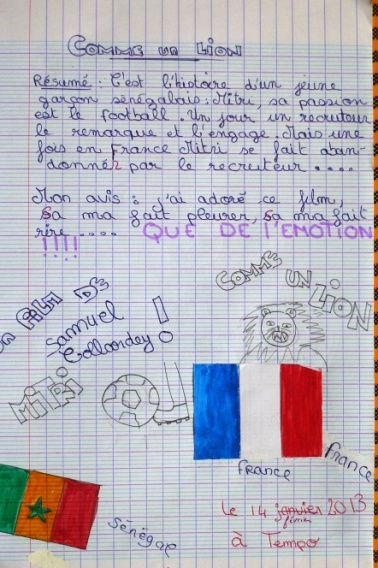 COMME UN LION
Résumé : C'est l'histoire d'un jeune
garçon sénégalais : Mitri, sa passion
est le football. Un jour un recruteur
le remarque et l'engage. Mais une
fois en France Mitri se fait aban-
donner par le recruteur ....
Mon avis : j'ai adoré ce film,
Sa ma fait pleurer, sa ma fait
rire .... QUE DE L'EMOTION
!!!!
COMME UN LION
FILM DE
Samuel
Collardey !
MITRI
France
France
Sénégal
Le 14 janvier 2013
à Tempo